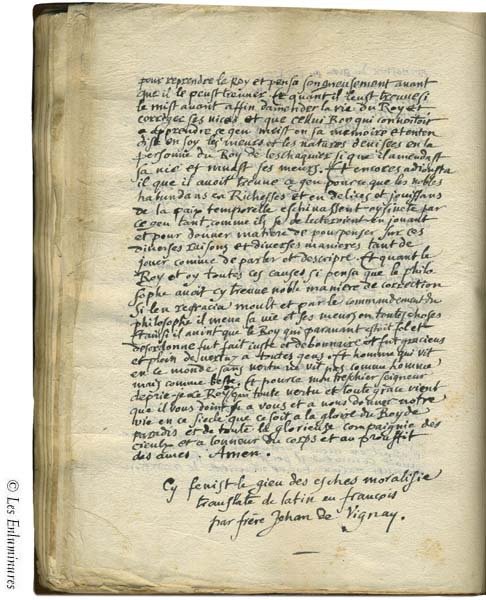 pour reprendre le Roy et pensa songneusement avant
que il le peust trouuer. Et quant il leust trouue si
le mist auant affin damender la vie du Roy et
corriger ses vices et que cellui Roy qui conuoitoit
a apprendre ce geu meist en sa memoire et enten
dist en soy les meurs et les natures deuisees en la
personne du Roy de leschaquier si que il amendast
sa vie et muast ses meurs. Et encores adiousta
il que il auoit trouue ce geu pource que les nobles
habundans en Richesses et en delices et jouissans
de la paix temporelle eschiuassent oysiuete par
ce geu tant comme ilz se delecteroient en jouant
et pour donner matiere de pourpenser sur ces
diuerses raisons et diuerses manieres tant de
jouer comme de parler et descripre. Et quant le
Roy et oy toutes ces causes si pensa que le philo
sophe auoit cy trouue noble maniere de correction
Si len regracia moult et par le commandement du
philosophe il mena sa vie et ses meurs en toutes choses
tant si il auint que le Roy qui parauant estoit fol et
desordonne fut fait iuste et debonnaire et fut gracieus
et plein de vertuz a toutes gens. Et homme qui vit
en ce monde sans vertu ne vit pas comme homme
mais comme beste. Et pource mon treschier seigneur
deprie je ce Roy qui toute vertu et toute grace vient
que il vous doint a vous et a nous donner notre
vie en ce siecle que ce soit a la gloire du Roy de
paradis et de toute le glorieuse compaignie des
cieulx et a lonneur du corps et au prouffit
des ames. Amen.
Cy fenist le gieu des esches moralisie
translate de latin en francois
par frère Jehan de Vignay.
© Les Enluminures